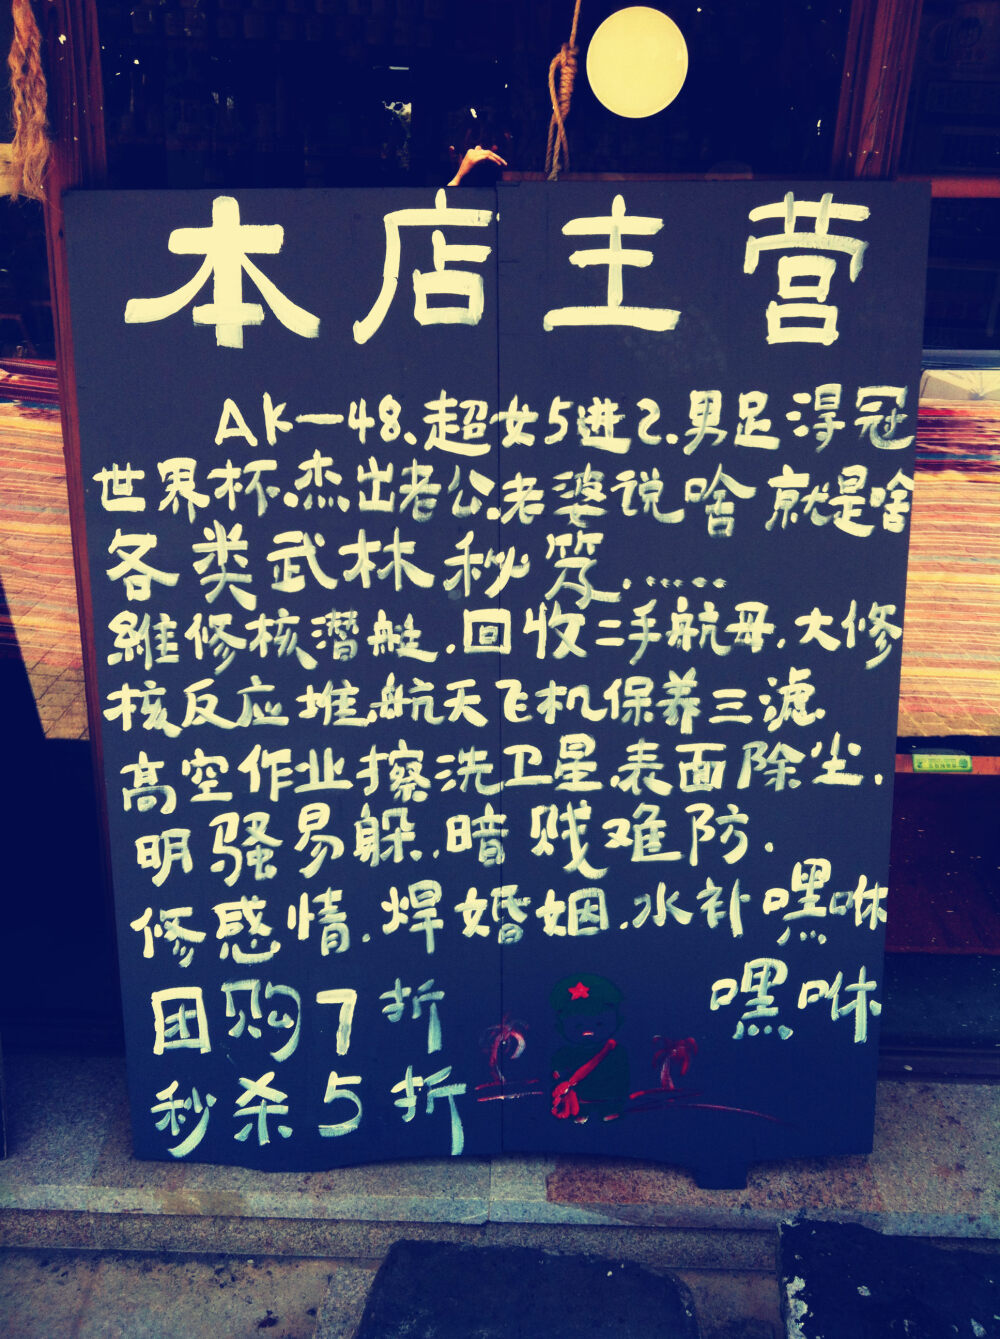 本店主营
AK—48、超女5进2.男足得冠
世界杯.杰出老公.老婆说啥就是啥
各类武林秘笈.……
維修核潜艇.回收二手航母.大修
核反应堆.航天飞机保养三滤.
高空作业擦洗卫星.表面除尘.
明骚易躲.暗贱难防.
修感情.焊婚姻.水补嘿咻
嘿咻
团购7折
秒杀5折